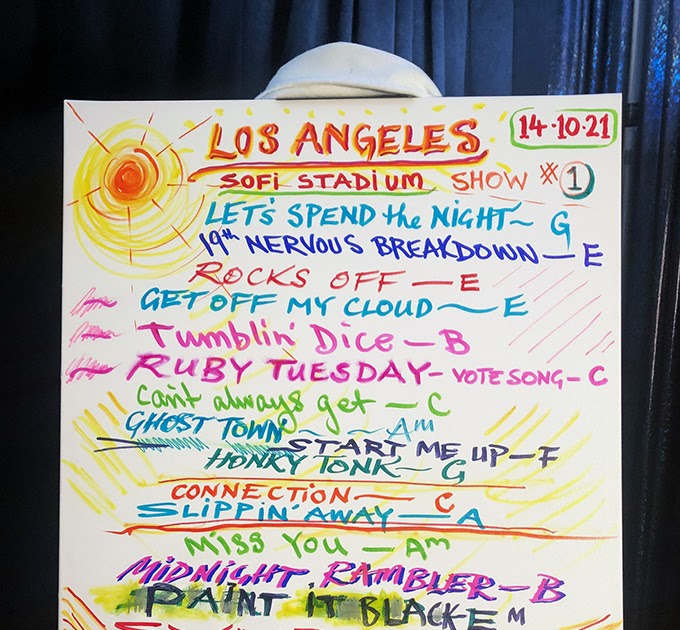 LOS ANGELES
14·10·21
SOFI STADIUM SHOW #1
LET'S SPEND the NIGHT~ G
19th NERVOUS BREAKDOWN — E
ROCKS OFF — E
GET OFF MY CLOUD — E
Tumblin' Dice — B
RUBY TUESDAY - VOTE SONG - C
can't always get — C
GHOST TOWN ~ ~ Am
START ME UP — F
HONKY TONK ~ G
CONNECTION — C
SLIPPIN' AWAY — A
MISS YOU — Am
MIDNIGHT RAMBLER - B
PAINT IT BLACK - EM